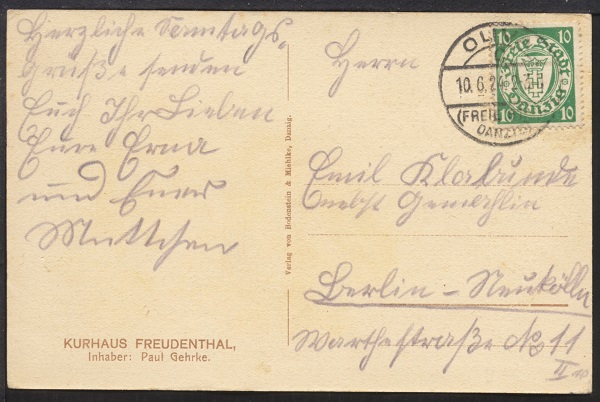 Herzliche Sonntags-
grüße senden
Euch Ihr Lieben
Eure Erna
und Euer
Muttchen
KURHAUS FREUDENTHAL,
Inhaber: Paul Gehrke.
Verlag von Bodenstein & Miehlke, Danzig.
10
10
Freie Stadt
Danzig
10
10
OLI
10.6.24
(FREI
DANZIG
Herrn
Emil Klabunde
nebst Gemahlin
Berlin - Neukölln
Warthestraße No 11
II